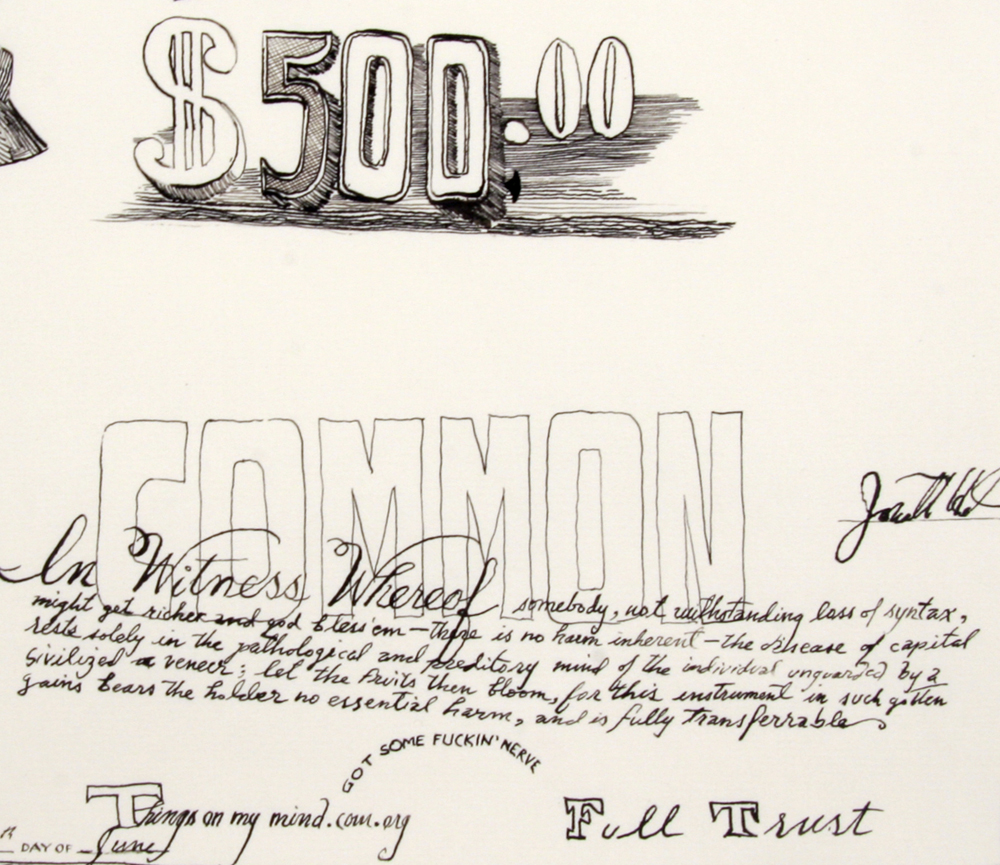 $500.00
COMMON
In Witness Whereof somebody, not withstanding loss of syntax,
might get richer and god bless'em—there is no harm inherent—the disease of capital
rests solely in the pathological and preditory mind of the individual unguarded by a
sivilized a veneer; let the fruits then bloom, for this instrument in such gotten
gains bears the holder no essential harm, and is fully transferrable
GOT SOME FUCKIN' NERVE
Things on my mind.com.org
Full Trust
DAY OF June